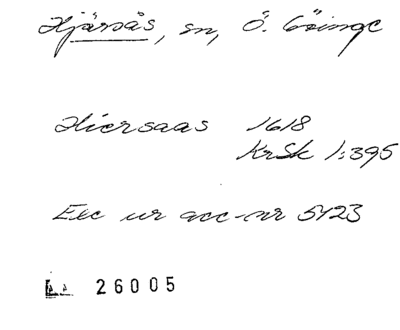 Hjärsås, sn, Ö. Göinge
Hiersaas 1618
KrSk 1:395
Exc ur acc-nr 5423
26005